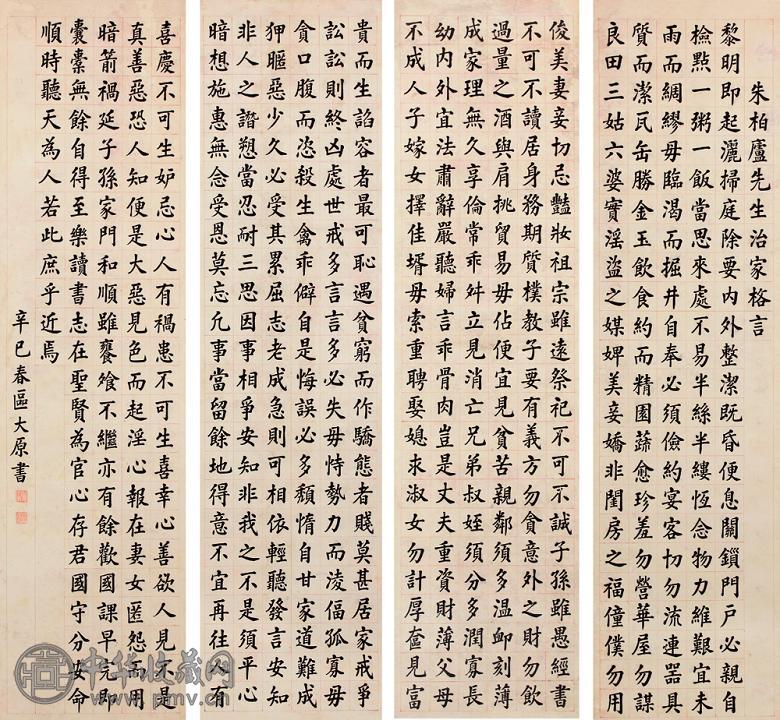 朱柏廬先生治家格言
黎明即起灑掃庭除要内外整潔既昏便息關鎖門戶必親自
檢點一粥一飯當思來處不易半絲半縷恆念物力維艱宜未
雨而綢繆毋臨渴而掘井自奉必須儉約宴客切勿流連器具
質而潔瓦缶勝金玉飲食約而精園蔬愈珍羞勿營華屋勿謀
良田三姑六婆實淫盜之媒婢美妾嬌非閨房之福僮僕勿用
俊美妻妾切忌豔妝祖宗雖遠祭祀不可不誠子孫雖愚經書
不可不讀居身務期質樸教子要有義方勿貪意外之財勿飲
過量之酒與肩挑貿易毋佔便宜見貧苦親鄰須多溫卹刻薄
成家理無久享倫常乖舛立見消亡兄弟叔姪須分多潤寡長
幼内外宜法肅辭嚴聽婦言乖骨肉豈是丈夫重資財薄父母
不成人子嫁女擇佳壻毋索重聘娶媳求淑女勿計厚奩見富
貴而生諂容者最可恥遇貧窮而作驕態者賤莫甚居家戒爭
訟訟則終凶處世戒多言言多必失毋恃勢力而凌偪孤寡毋
貪口腹而恣殺生禽乖僻自是悔誤必多頹惰自甘家道難成
狎暱惡少久必受其累屈志老成急則可相依輕聽發言安知
非人之譖愬當忍耐三思因事相爭安知非我之不是須平心
暗想施惠無念受恩莫忘凡事當留餘地得意不宜再往人有
喜慶不可生妒忌心人有禍患不可生喜幸心善欲人見不是
真善惡恐人知便是大惡見色而起淫心報在妻女匿怨而用
暗箭禍延子孫家門和順雖饔飧不繼亦有餘歡國課早完即
囊橐無餘自得至樂讀書志在聖賢為官心存君國守分安命
順時聽天為人若此庶乎近焉
辛巳春區大原書
中华收藏网
www.pmv.cn